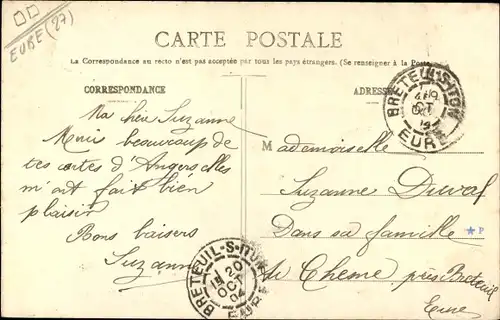 EURE (27)
CARTE POSTALE
La Correspondance au recto n'est pas acceptée par tous les pays étrangers. (Se renseigner à la Poste
CORRESPONDANCE
Ma chère Suzanne
Merci beaucoup de
tes cartes d'Angers elles
m'ont fait bien
plaisir
Bons baisers
Suzanne
BRETEUIL-S-ITON
20
OCT
04
EURE
ADRESSE
BRETEUIL-S-ITON
OCT
EURE
Mademoiselle
Suzanne Duval
Dans sa famille
Chesne près Breteuil
Eure